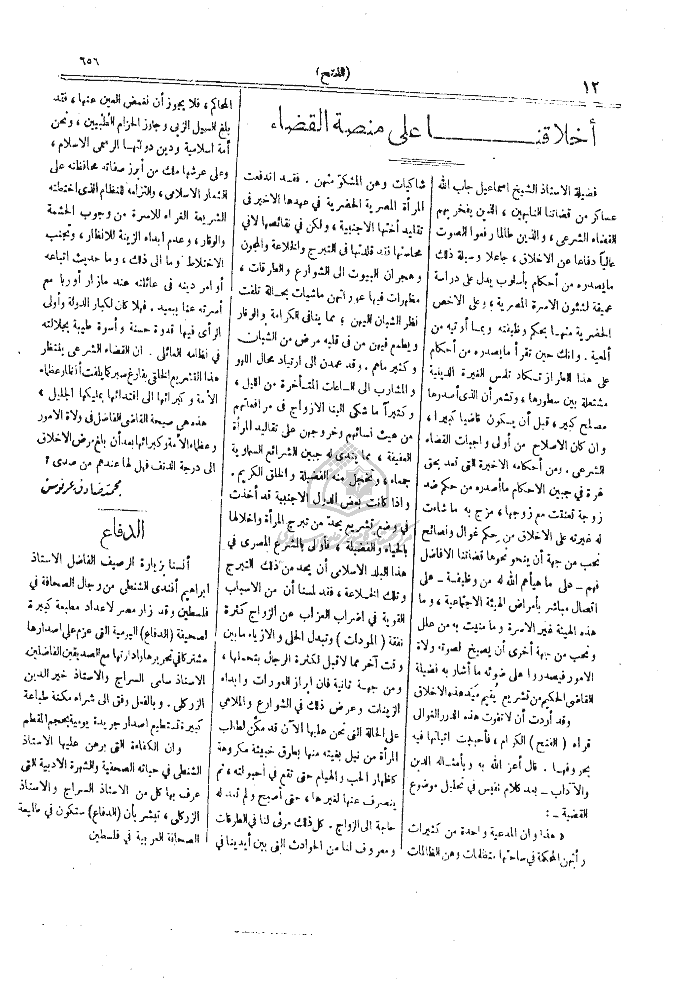 ١٢
(الفتح)
٦٥٦
أخلاقنــا على منصة القضاء
فضيلة الاستاذ الشيخ اسماعيل جاب الله
عساكر من قضاتنا النابهين ، الذين يفخر بهم
القضاء الشرعي ، والذين طالما رفعوا الصوت
عالياً دفاعا عن الاخلاق ، جاعلا وسيلة ذلك
مايصدره من أحكام بأسلوب يدل على دراسة
عميقة لشئون الاسرة المصرية ، وعلى الاخص
الحضرية منها بحكم وظيفته وبما أوتيه من
ألمعية . وانك حين تقرأ مايصدره من أحكام
على هذا الطراز تكاد تلمس الغيرة الدينية
مشتعلة بين سطورها ، وتشعر أن الذى أصدرها
مصلح كبير ، قبل أن يسكون قاضيا كبيرا ،
وان كان الاصلاح من أولى واجبات القضاء
الشرعي . ومن أحكامه الاخيرة التى تعد بحق
غرة في جبين الاحكام ماأصدره من حكم ضد
زوجة لعنفت مع زوجها ، مزج به ما شاءت
له غيرته على الاخلاق من حكم غوال ونصائح
نحب من جهة أن ينحو نحوها قضاتنا الافاضل
فهم – على ماهيأهم الله له من وظيفة – على
اتصال مباشر بأمراض الهيئة الاجتماعية ، وما
هذه الهيئة غير الاسرة وما منيت به من علل
ونحب من جهة أخرى أن يصيخ لصوته ولاة
الامور فيصدروا على ضوئه ما أشار به فضيلة
القاضى الحكيم من تشريع يُقيم مَيَد هذه الاخلاق
وقد أردت أن لا تفوت هذه الدرر الغوالى
قراء ( الفتح ) الكرام ، فأحببت اثباتها فيه
بحروفها . قال أعز الله به وبأمثاله الدين
والآداب – بعد كلام نفيس في تحليل موضوع
القضية – :
« هذا وان المدعية واحدة من كثيرات
رأيتهن المحكمة في ساحتها متظلمات وهن الظالمات
شاكيات وهن المشكوّ منهن . فقد اندفعت
المرأة المصرية الحضرية في عهدها الاخير فى
تقليد أختها الاجنبية ، ولكن في نقائصها لافي
محامدتها فقد قلدتها في التبرج والخلاعة والمجون
وهجران البيوت الى الشوارع والطرقات ،
مظهرات فيها عوراتهن ماشيات بحالة تلفت
نظر الشبان اليهن ؛ مما ينافى الكرامة والوقار
ويطمع فيهن من فى قلبه مرض من الشبان
وكثير ماهم . وقد عمدن الى ارتياد محال اللهو
والمشارب الى الساعات المتأخرة من الليل ،
وكثيراً ما شكى الينا الازواج في مرافعاتهم
من عبث نسائهم وخروجهن على تقاليد المرأة
العفيفة ، مما يندى له جبين الشرائع السماوية
جمعاء ، وتخجل منه الفضيلة والخلق الكريم .
واذا كانت بعض الدول الاجنبية قد أخذت
في وضع تشريع يحدّ من تبرج المرأة واخلالها
بالحياء والفضيلة ، فأولى بالشرع المصرى فى
هذا البلد الاسلامى أن يحد من ذلك التبرج
وتلك الخلاعة ، فقد لمسنا أن من الاسباب
القوية في اضراب العزاب عن الزواج كثرة
نفقة ( المودات ) وتبدل الحلى والازياء مابين
وقت آخر مما لاقبل لكثرة الرجال بتحملها ،
ومن جهة ثانية فان ابراز العورات وابداء
الزينات وعرض ذلك في الشوارع والملاهي
على الحالة التى نحن عليها الآن قد مكّن لطالب
المرأة من نيل بغيته منها بطرق خبيثة مكروهة
كاظهار الحب والهيام حتى تقع فى أحبولته ، ثم
ينصرف عنها لغيرها ، حتى أصبح ولم تعد له
حاجة الى الزواج . كل ذلك مرئى لنا في الطرقات
ومعروف لنا من الحوادث التى بين أيدينا فى
المحاكم ، فلا يجوز أن نغمض العين عنها ، فقد
بلغ السيل الزبى وجاوز الحزام الطُبيين ، ونحن
أمة اسلامية ودين دولتها الرسمى الاسلام ،
وعلى عرشها ملك من أبرز صفاته محافظته على
الشعار الاسلامى ، والتزامه للنظام الذى اختطته
الشريعة الغراء للاسرة من وجوب الحشمة
والوقار ، وعدم ابداء الزينة للانظار ، وتجنب
الاختلاط وما الى ذلك ، وما حديث اتباعه
أوامر دينه فى عائلته عند مازار أوربا مع
أسرته عنا ببعيد . فهلا كان لكبار الدولة وأولى
الرأى فيها قدوة حسنة وأسوة طيبة بجلالته
في نظامه العائلي . ان القضاء الشرعى ينتظر
هذا التشريع الخلقى بفارغ صبر كما يلفت أنظار عظماء
الأمة وكبرائها الى اقتدائها بمليكها الجليل ،
هذه هي صيحة القاضى الفاضل في ولاة الامور
وعظماء الأمة وكبرائها بعد أن بلغ مرض الاخلاق
الى درجة الدنف فهل لها عندهم من صدى ؟
محمد صادق عرنوس
الدفاع
أنسنا بزيارة الرصيف الفاضل الاستاذ
ابراهيم أفندى الشنطى من رجال الصحافة فى
فلسطين وقد زار مصر لاعداد مطبعة كبيرة
لصحيفة (الدفاع) اليومية التى عزم على اصدارها
مشتركا في تحريرها وادارتها مع الصديقين الفاضلين
الاستاذ سامى السراج والاستاذ خير الدين
الزركلى . وبالفعل وفق الى شراء مكنة طباعة
كبيرة تستطيع اصدار جريدة يومية بحجم المقطم
وان الكفاءة التى برهن عليها الاستاذ
الشنطى في حياته الصحفية والشهرة الادبية التى
عرف بها كل من الاستاذ السراج والاستاذ
الزركلى ، تبشر بأن (الدفاع) ستكون في طليعة
الصحافة العربية في فلسطين